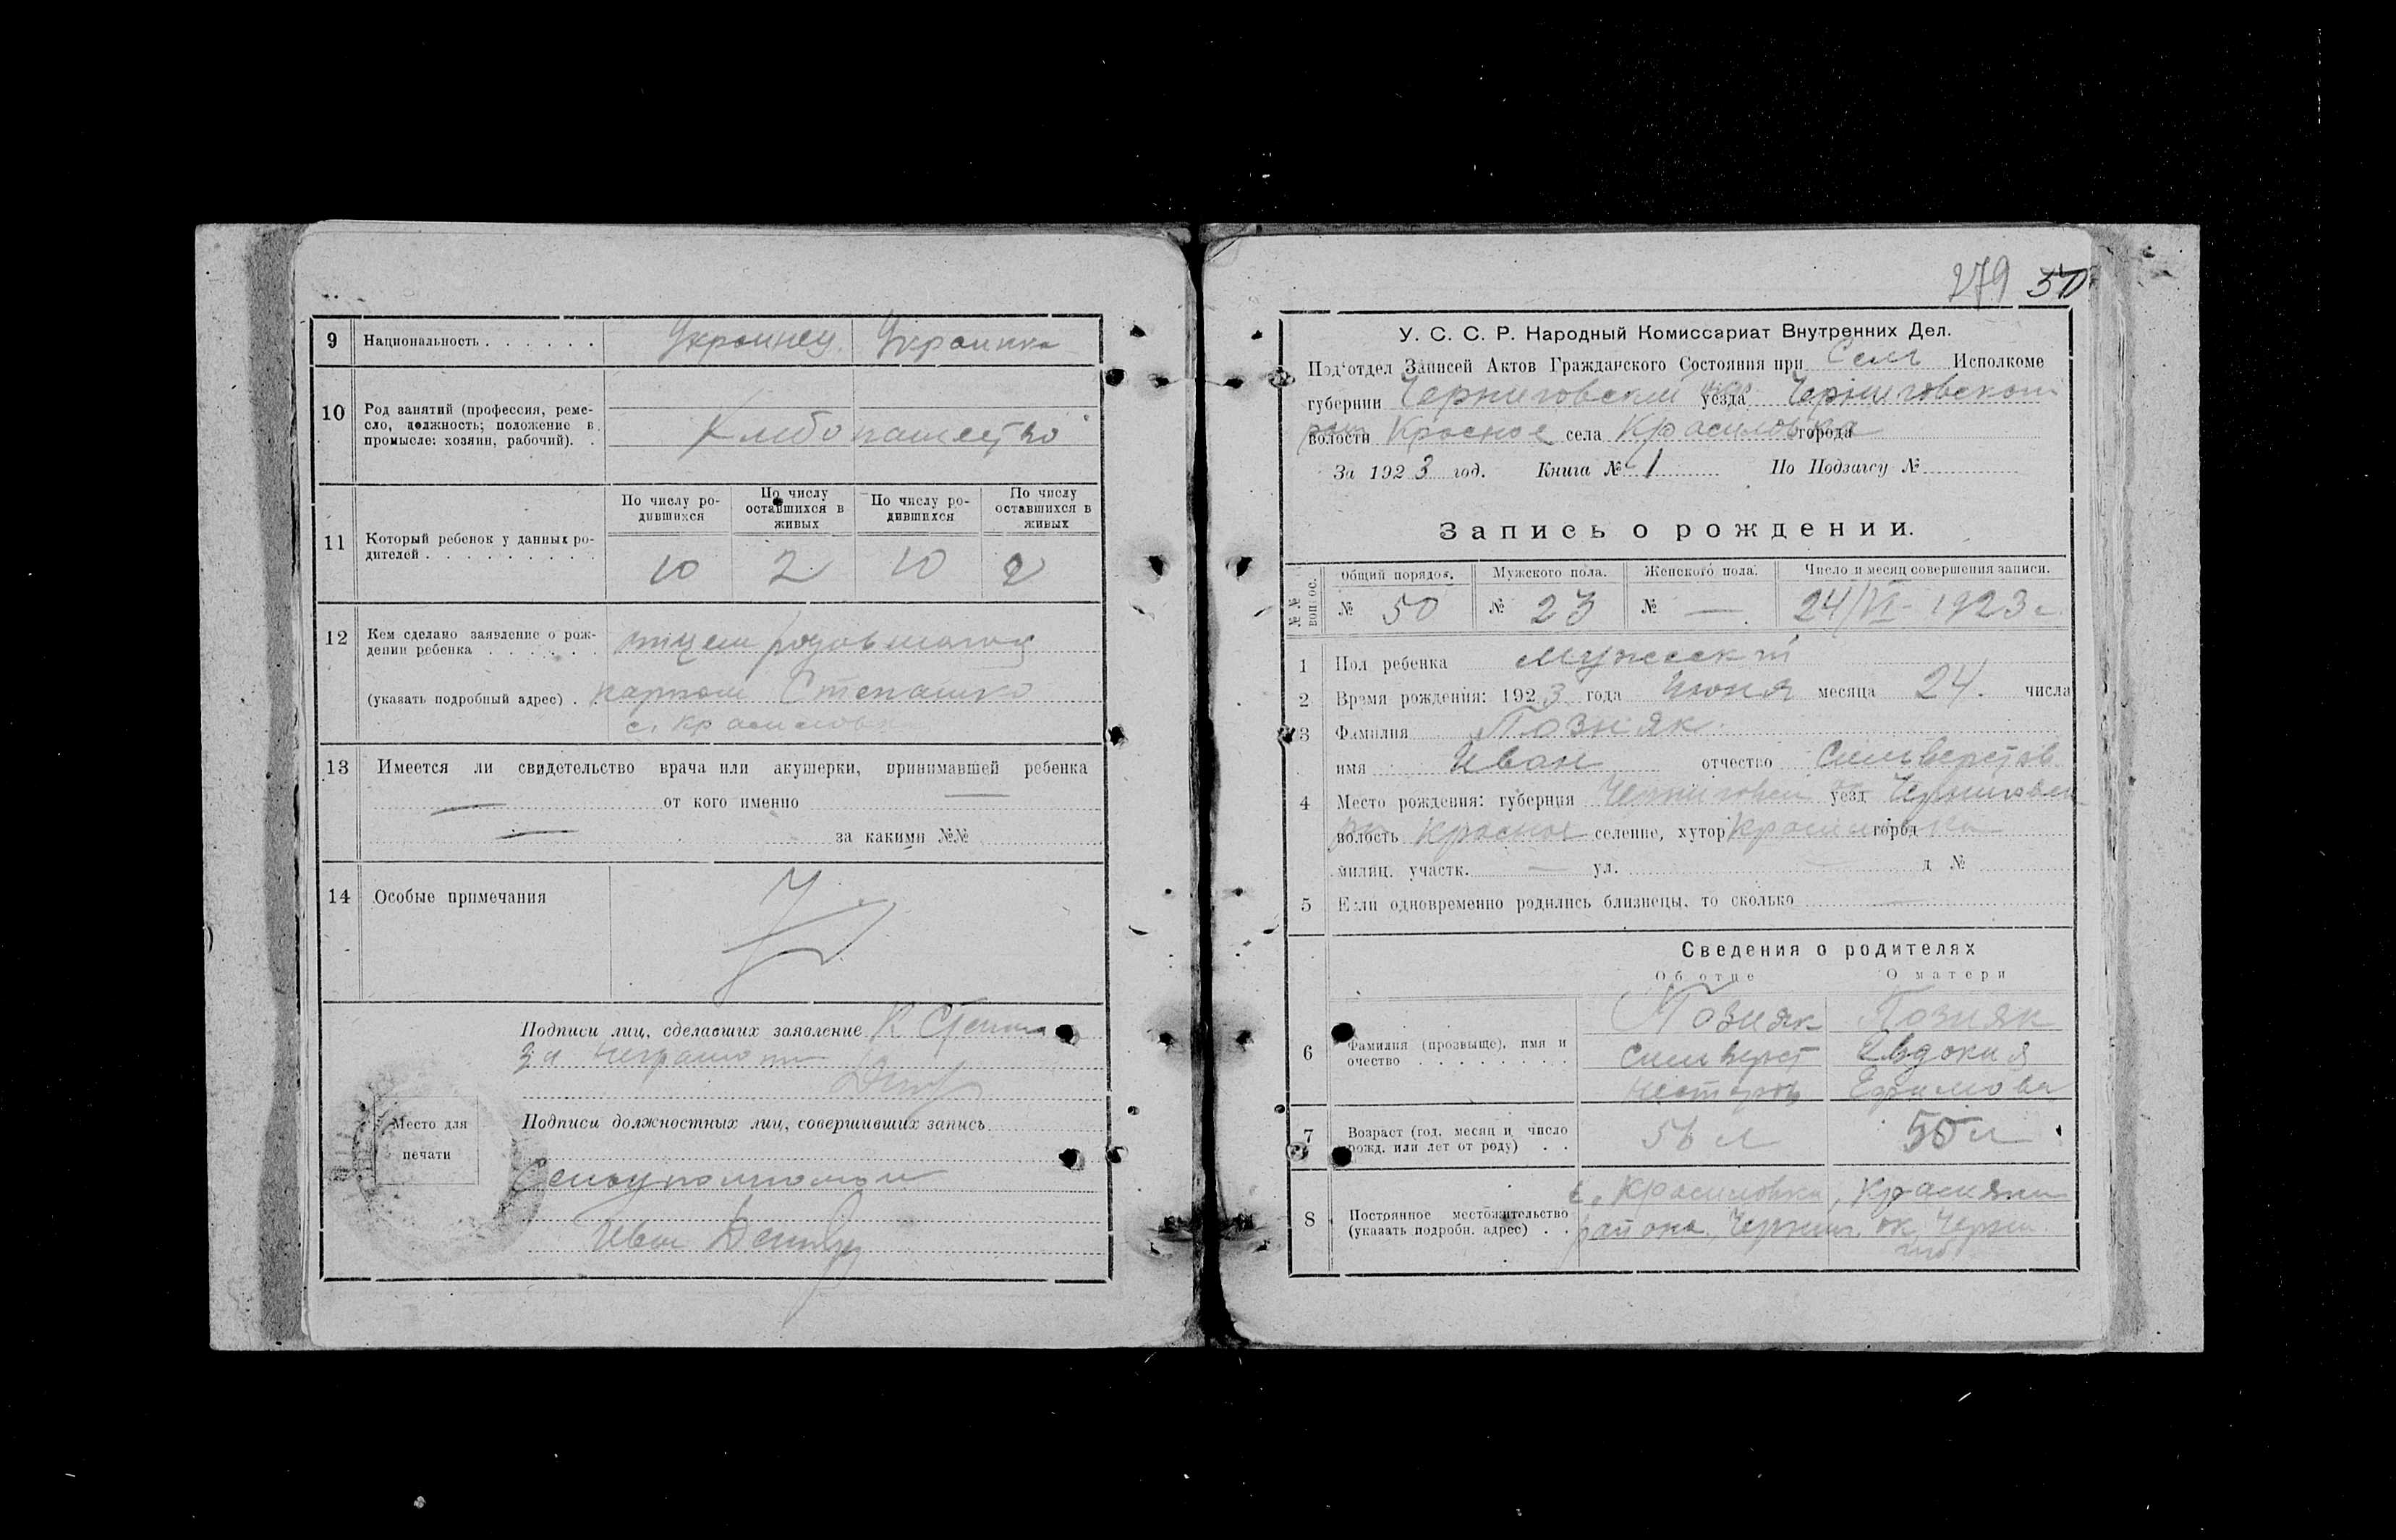 9 Национальность . . . . . . Украинец Украинка
10 Род занятий (профессия, реме-
сло, должность; положение в
промысле: хозяин, рабочий). .
Хлибопашество
11 Который ребенок у данных ро-
дителей . . . . . . . . .
По числу ро-
дившихся
По числу
оставшихся в
живых
По числу ро-
дившихся
По числу
оставшихся в
живых
10 2 10 2
12 Кем сделано заявление о рож-
дении ребенка . . . . . .
отцем
(указать подробный адрес) . Степашко
с. Красиловка
13 Имеется ли свидетельство врача или акушерки, принимавшей ребенка
— от кого именно —
— за какими №№
14 Особые примечания
Подписи лиц, сделавших заявление К
за
Место для
печати
Подписи должностных лиц, совершивших запись
Иван
279 50
У. С. С. Р. Народный Комиссариат Внутренних Дел.
Под'отдел Записей Актов Гражданского Состояния при Сель Исполкоме
губернии Черниговской уезда Черниговском
волости Красное села Красиловка города
За 1923 год. Книга № 1 По Подзагсу №
Запись о рождении.
№ № вопрос.
Общий порядов. Мужского пола. Женского пола. Число и месяц совершения записи.
№ 50 № 23 № — 24/VI - 1923 г
1 Пол ребенка мужеский
2 Время рождения: 1923 года Июня месяца 24. числа
3 Фамилия Позняк
имя Иван отчество Сильверстов
4 Место рождения: губерния Чернигов уезд Чернигов
волость Красное селение, хутор Красиловка город
милиц. участк. — ул. д №
5 Если одновременно родились близнецы, то сколько —
Сведения о родителях
Об отце О матери
6 Фамилия (прозвыще), имя и
очество . . . . . . . .
Позняк Позняк
Сильверст Евдокия
Нестеров Ефимова
7 Возраст (год, месяц и число
рожд. или лет от роду) . .
56 л 50 л
8 Постоянное местожительство
(указать подробн. адрес) . .
с. Красиловка,
района, Черниг. ок. Черни